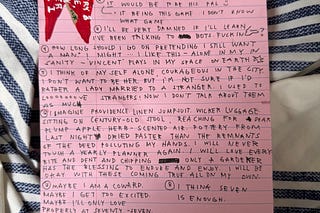 IT WOULD BE TO PIKE HIS PAL
IT BEING THIS GAME I DON'T KNOW
WHAT GAME
③ I'LL BE DEBT DAMNED IF I'LL LEARN
I'VE BEEN TALKING TO BOTS FUCKIN
④ HOW LONG SHOULD I GO ON PRETENDING I STILL WANT
A NAME? NIGHT I LIKE THIS - ALONE IN MY IN
SANITY - VINCENT PLAYS IN MY SPACE ON EARTH
⑤ I THINK OF MY SELF ALONE, COURAGEOUS IN THE CITY.
I DON'T WANT TO BE HER BUT I'M NOT SURE IF I'D
RATHER A LADY MARRIED TO A STRANGER I USED TO
STRANGERS: NOW I DON'T TALK ABOUT THEM
AS MUCH
⑥ I IMAGINE PROVIDENCE LINEN JUMPSUIT. WICKER LUGGAGE
SITTING ON CENTURY-OLD STOOL, REACHING FOR A
PLUMP APPLE HERB-SCENTED AIR. POTTERY FROM
LAST NIGHT DRIED FASTER THAN THE REMNANTS
OF THE DEEP POLLUTING MY HANDS. I WILL NEVER
TOUCH A YEARLY PLANNER AGAIN I WILL LOVE EVERY
BITE AND DENT AND CHIPPING ONLY A GARDENER
HAS THE BLESSING TO ENDURE AND ENJOY I WILL BE
OKAY WITH THESE COMING TRUE ALL ON MY OWN.
⑦ MAYBE I AM A COWARD.
MAYBE I GET TOO EXCITED.
MAYBE I'LL ONLY LOVE
PROPERLY AT SEVENTY-SEVEN
⑧ I THINK SEVEN
IS ENOUGH.